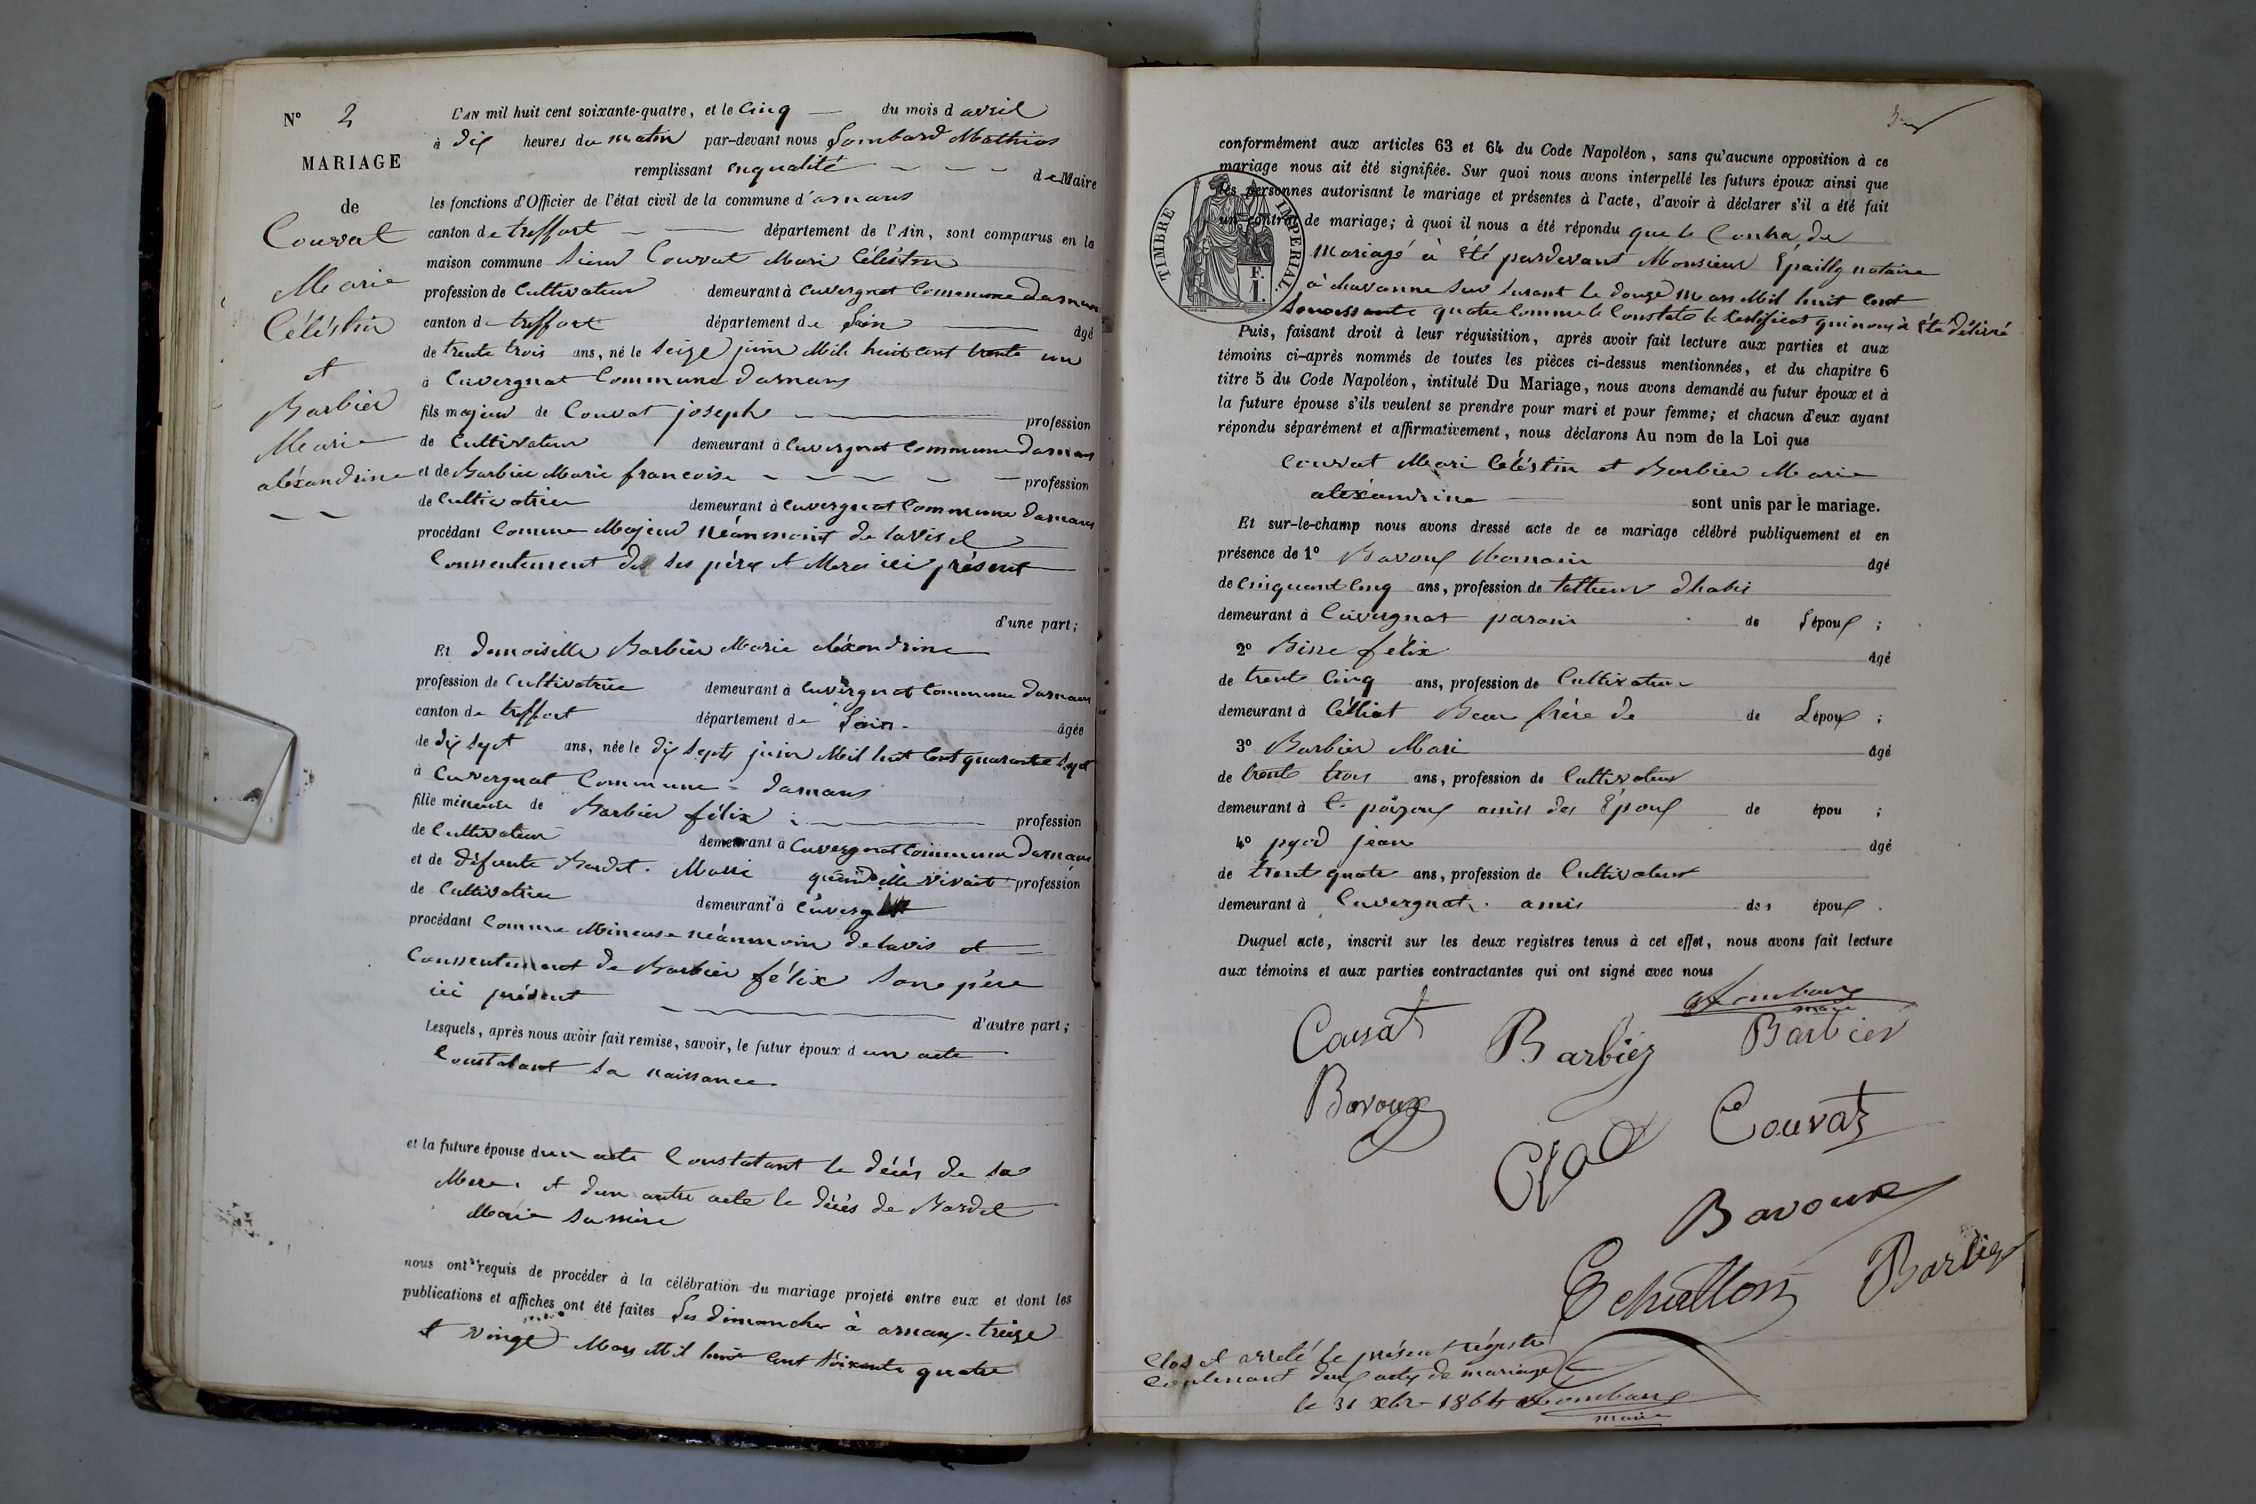 N° 2
MARIAGE
de
Couvat
Marie
Céléstin
et
Barbier
Marie
aléxandrine
L'AN mil huit cent soixante-quatre, et le Cinq du mois d avril
à dix heures du matin par-devant nous Lombard Mathias
remplissant enqualité de Maire
les fonctions d'Officier de l'état civil de la commune d'arnans
canton de treffort département de l'Ain, sont comparus en la
maison commune Sieur Couvat Mari Céléstin
profession de Cultivateur demeurant à Cuvergnat Commune Darnans
canton de treffort département de Lain âgé
de trente trois ans, né le Seize juin Mil huit cent trente un
à Cuvergnat Commune Darnans
fils majeur de Couvat joseph profession
de Cultivateur demeurant à Cuvergnat Commune Darnans
et de Barbier Marie francoise profession
de Cultivatrice demeurant à Cuvergnat Commune Darnans
procédant Comme Majeur néanmoint de lavis et
Consentement des ses pére et Mere ici présent
d'une part;
Et Demoiselle Barbier Marie aléxandrine
profession de Cultivatrice demeurant à Cuvérgnat Commune Darnans
canton de treffort département de Lain âgée
de dix sept ans, née le dix septs juin Mil huit Cent quarante sept
à Cuvergnat Commune Darnans
fille mineure de Barbier félix profession
de Cultivateur demeurant à Cuvergnat Commune Darnans
et de défunte Bardet Marie quand elle vivait profession
de Cultivatrice demeurant à Cuvergnat
procédant Comme Mineuse néanmoin de lavis et
Consentement de Barbier félix Sone pére
ici présent d'autre part;
Lesquels, après nous avoir fait remise, savoir, le futur époux d un acte
Constatant sa naissance
et la future épouse dun acte Constatant le décés de sa
Mere et dun autre acte le décés de Bardet
Marie sa mère
nous ont requis de procéder à la célébration du mariage projeté entre eux et dont les
publications et affiches ont été faites Les dimanches à arnans treize
et vingt Mars Mil huit Cent soixante quatre
conformément aux articles 63 et 64 du Code Napoléon, sans qu'aucune opposition à ce
mariage nous ait été signifiée. Sur quoi nous avons interpellé les futurs époux ainsi que
les personnes autorisant le mariage et présentes à l'acte, d'avoir à déclarer s'il a été fait
un contrat de mariage; à quoi il nous a été répondu que le Contra de
Mariagé à été pardevant Monsieur Epailly notaire
à chavanne sur surant le douze Mars Mil huit Cent
Soixante quatre Comme le Constate le Certificat qui nous à été délivré
TIMBRE IMPERIAL.
F.
I.
Puis, faisant droit à leur réquisition, après avoir fait lecture aux parties et aux
témoins ci-après nommés de toutes les pièces ci-dessus mentionnées, et du chapitre 6
titre 5 du Code Napoléon, intitulé Du Mariage, nous avons demandé au futur époux et à
la future épouse s'ils veulent se prendre pour mari et pour femme; et chacun d'eux ayant
répondu séparément et affirmativement, nous déclarons Au nom de la Loi que
Couvat Mari Céléstin et Barbier Marie
aléxandrine sont unis par le mariage.
Et sur-le-champ nous avons dressé acte de ce mariage célébré publiquement et en
présence de 1° Bavoux Romain âgé
de Cinquant Cinq ans, profession de tallieur dhabis
demeurant à Cuvergnat parain de Lépoux ;
2° félix âgé
de trente Cinq ans, profession de Cultivateur
demeurant à Célliat Beau frére de de Lépoux ;
3° Barbier Mari âgé
de trente trois ans, profession de Cultivateur
demeurant à amis des Époux de épou ;
4° jean âgé
de trent quatre ans, profession de Cultivateur
demeurant à Cuvergnat amis des époux .
Duquel acte, inscrit sur les deux registres tenus à cet effet, nous avons fait lecture
aux témoins et aux parties contractantes qui ont signé avec nous
Lombard
maire
Couvat Barbier Barbier
Bavoux
Couvat
Bavoux
Echallon Barbier
Clos et arrêté le présent régistre
Contenant deux actes de mariage
le 31 xbre 1864 Lombard
maire